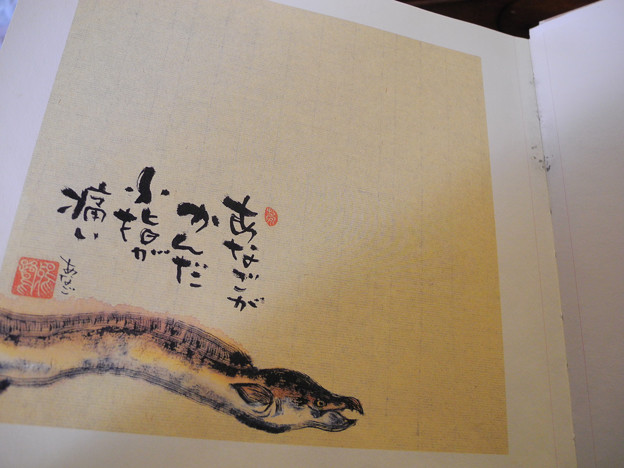 あなごが
かんだ
小指が
痛い
あなご